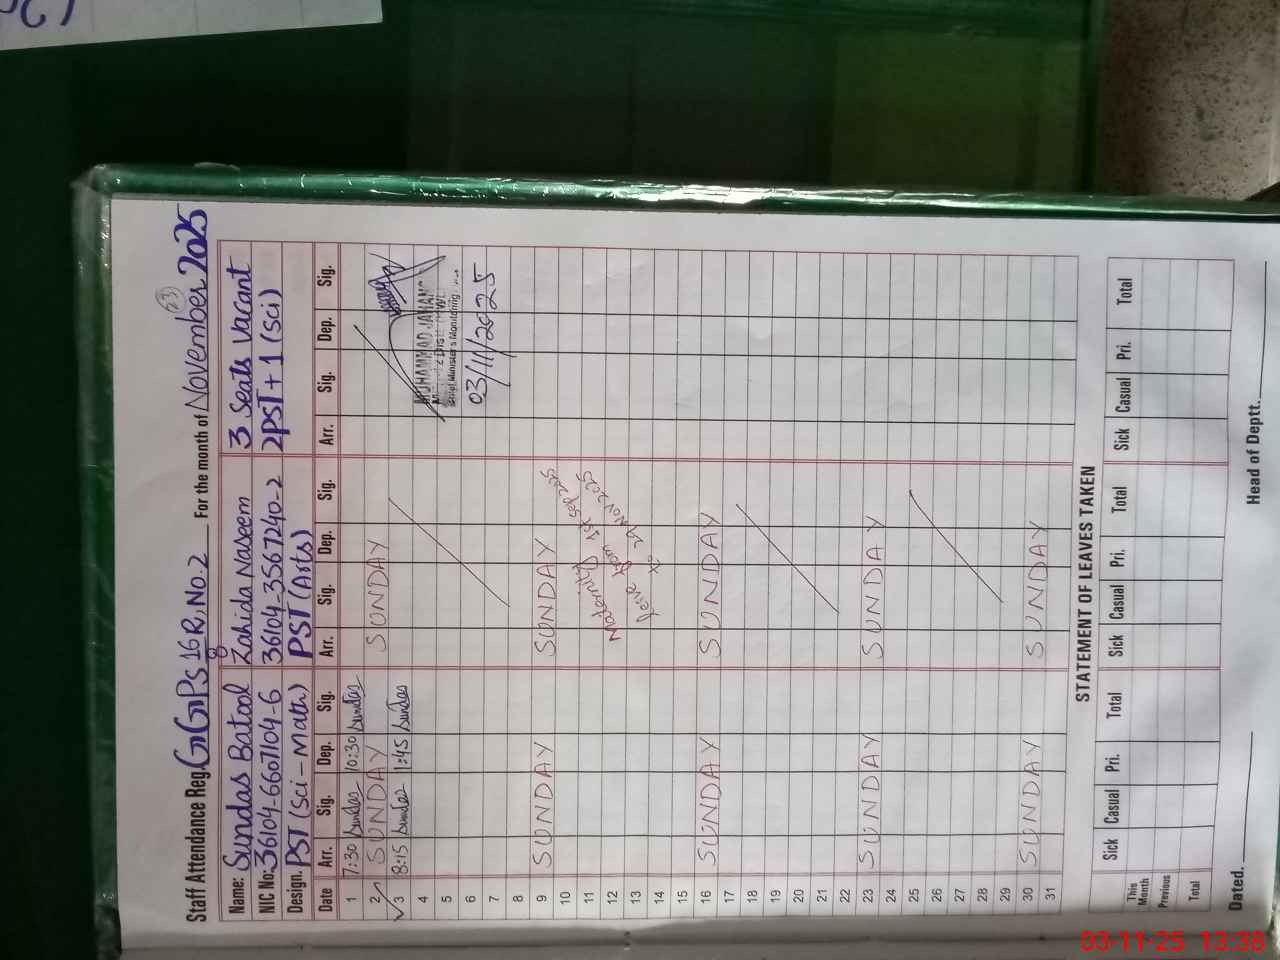 Staff Attendance Reg. GGPS 16 8R, No.2 For the month of November 2025
23
Name: Sundas Batool Zahida Naseem 3 Seats Vacant
NIC No: 36104-6607104-6 36104-3567240-2 2PST + 1 (Sci)
Design. PST (Sci-Math) PST (Arts)
Date Arr. Sig. Dep. Sig. Arr. Sig. Dep. Sig. Arr. Sig. Dep. Sig.
1 7:30 Sundas 10:30 Sundas
2 SUNDAY SUNDAY
3 8:15 Sundas 1:45 Sundas
4 MUHAMMAD JAHANG
5
6 03/11/2025
7
8
9 SUNDAY SUNDAY
10
11 Maternity
12 leive from 1st Sep 2025
13 to 29 Nov 2025
14
15
16 SUNDAY SUNDAY
17
18
19
20
21
22
23 SUNDAY SUNDAY
24
25
26
27
28
29
30 SUNDAY SUNDAY
31
STATEMENT OF LEAVES TAKEN
Sick Casual Pri. Total Sick Casual Pri. Total Sick Casual Pri. Total
This Month
Previous
Total
Dated. Head of Deptt.
03-11-25 13:38